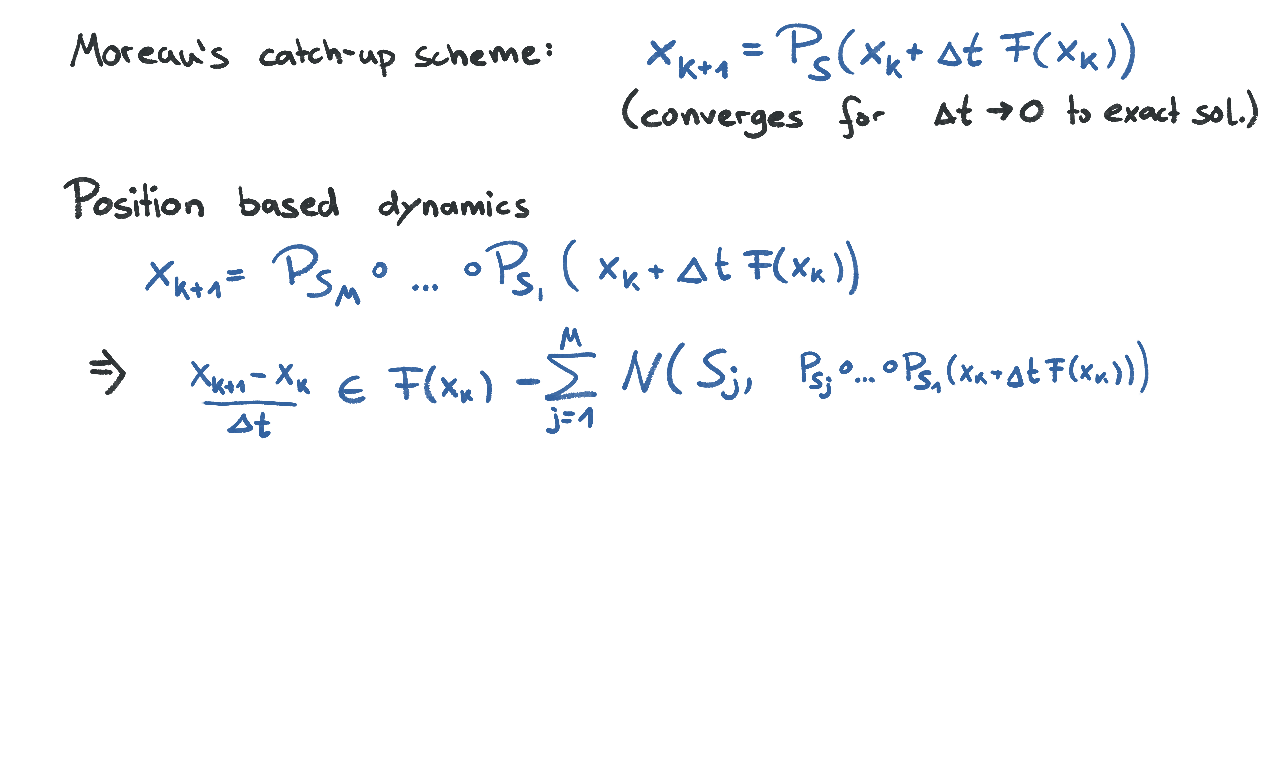 Moreau's catch-up scheme: x_{k+1} = P_S(x_k + Δt F(x_k))
(converges for Δt → 0 to exact sol.)
Position based dynamics
x_{k+1} = P_{S_M} ∘ ... ∘ P_{S_1} (x_k + Δt F(x_k))
⇒ \frac{x_{k+1} - x_k}{Δt} ∈ F(x_k) - \sum_{j=1}^{M} N(S_j, P_{S_j} ∘ ... ∘ P_{S_1}(x_k + Δt F(x_k)))